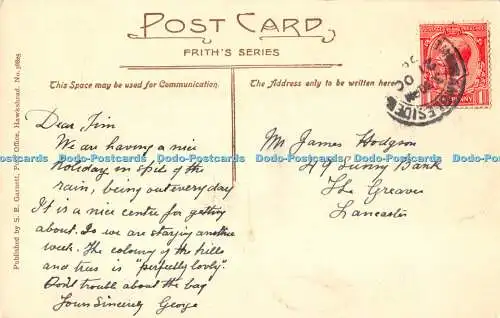 POST CARD
FRITH'S SERIES
This Space may be used for Communication.
The Address only to be written here
Published by S. E. Garnett, Post Office, Hawkshead. No.
Dear Jim
We are having a nice
holiday in spite of the
rain, being out every day
It is a nice centre for getting
about. So we are staying another
week. The colouring of the hills
and trees is "perfectly lovly".
Dont trouble about the bag
Yours Sincerely George
Mr James Hodgson
49 Sunny Bank
The Greaves
Lancaster
AMBLESIDE
PENNY
Dodo-Postcards Dodo-Postcards Dodo-Postcards Dodo-Postcards Dodo-Postcards